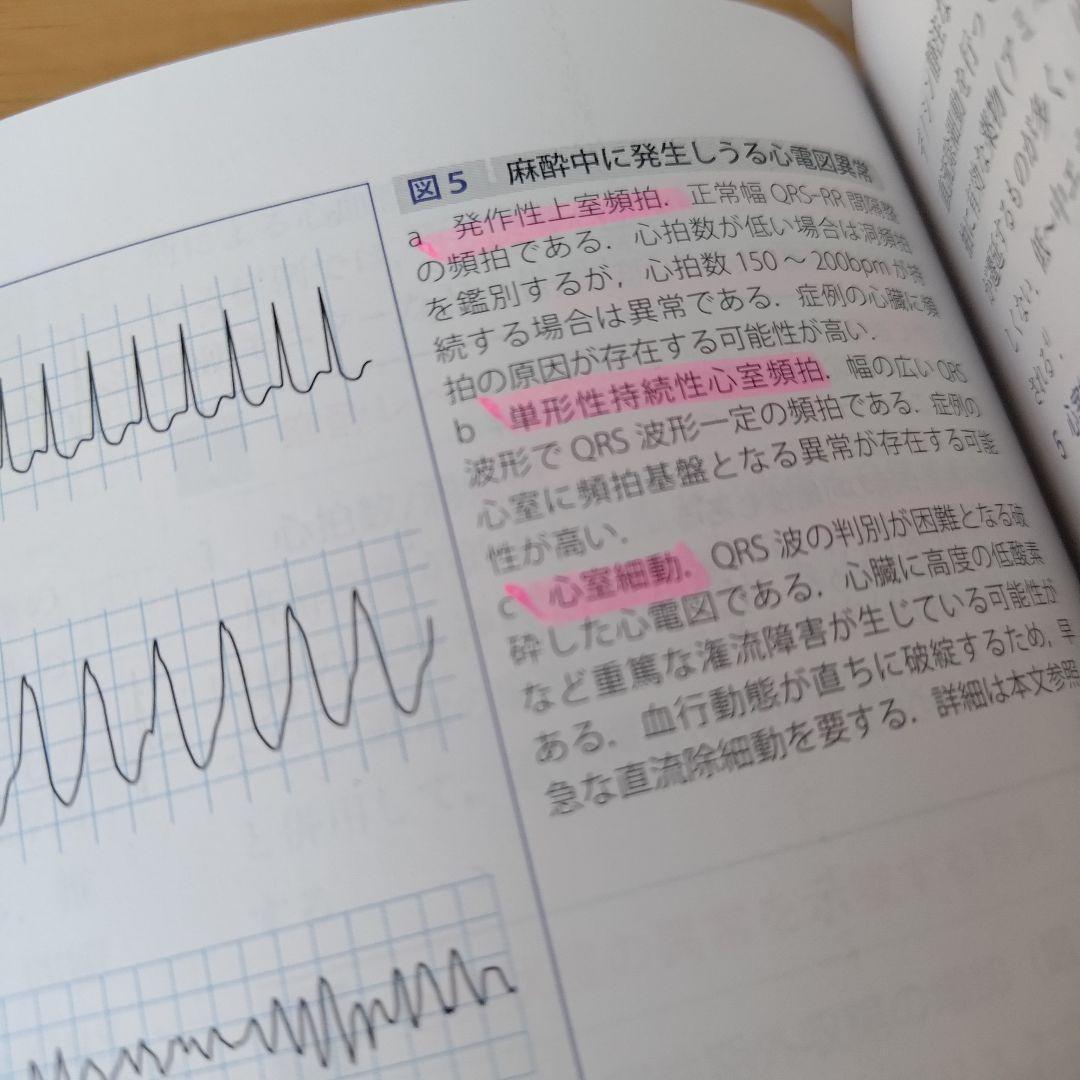 図5 麻酔中に発生しうる心電図異常
a 発作性上室頻拍．正常幅QRS-RR間隔整
の頻拍である．心拍数が低い場合は洞頻拍
を鑑別するが，心拍数150～200bpmが持
続する場合は異常である．症例の心臓に頻
拍の原因が存在する可能性が高い．
b 単形性持続性心室頻拍．幅の広いQRS
波形でQRS波形一定の頻拍である．症例の
心室に頻拍基盤となる異常が存在する可能
性が高い．
c 心室細動．QRS波の判別が困難となる破
砕した心電図である．心臓に高度の低酸素
など重篤な灌流障害が生じている可能性が
ある．血行動態が直ちに破綻するため，早
急な直流除細動を要する．詳細は本文参照